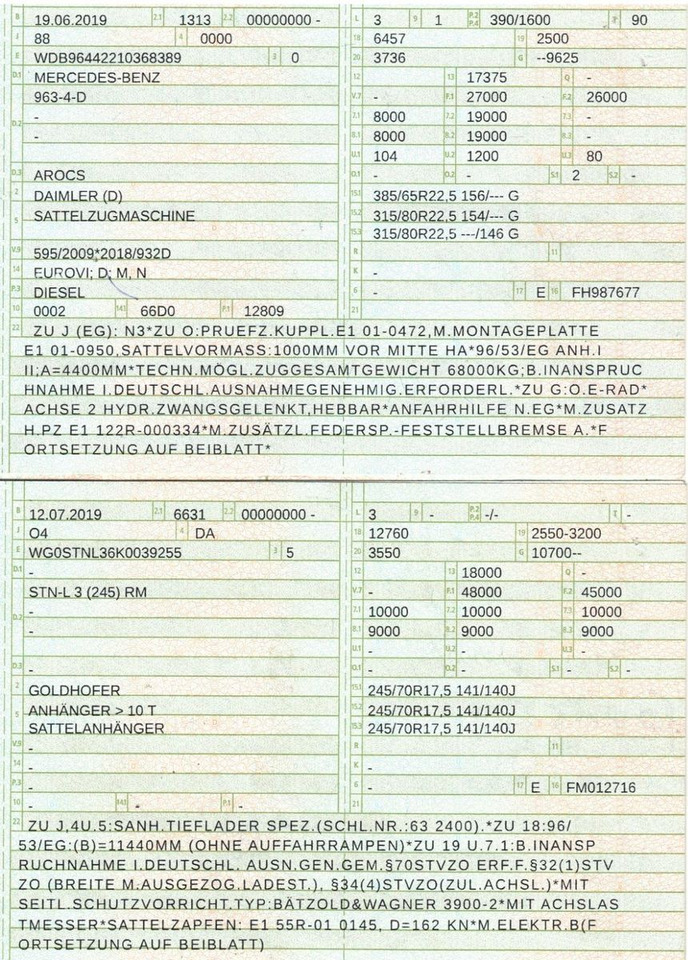 B 19.06.2019 2.1 1313 2.2 00000000 - L 3 9 1 P.2 P.4 390/1600 T 90
J 88 4 0000 18 6457 19 2500
E WDB96442210368389 3 0 20 3736 G --9625
D.1 MERCEDES-BENZ 12 13 17375 Q -
963-4-D V.7 - F.1 27000 F.2 26000
D.2 - 7.1 8000 7.2 19000 7.3 -
- 8.1 8000 8.2 19000 8.3 -
U.1 104 U.2 1200 U.3 80
D.3 AROCS O.1 - O.2 - S.1 2 S.2 -
2 DAIMLER (D) 15.1 385/65R22,5 156/--- G
5 SATTELZUGMASCHINE 15.2 315/80R22,5 154/--- G
15.3 315/80R22,5 ---/146 G
V.9 595/2009*2018/932D R 11
14 EUROVI; D; M, N K -
P.3 DIESEL 6 - 17 E 16 FH987677
10 0002 14.1 66D0 P.1 12809 21
22 ZU J (EG): N3*ZU O:PRUEFZ.KUPPL.E1 01-0472,M.MONTAGEPLATTE
E1 01-0950,SATTELVORMASS:1000MM VOR MITTE HA*96/53/EG ANH.I
II;A=4400MM*TECHN.MÖGL.ZUGGESAMTGEWICHT 68000KG;B.INANSPRUC
HNAHME I.DEUTSCHL.AUSNAHMEGENEHMIG.ERFORDERL.*ZU G:O.E-RAD*
ACHSE 2 HYDR.ZWANGSGELENKT,HEBBAR*ANFAHRHILFE N.EG*M.ZUSATZ
H.PZ E1 122R-000334*M.ZUSÄTZL.FEDERSP.-FESTSTELLBREMSE A.*F
ORTSETZUNG AUF BEIBLATT*
B 12.07.2019 2.1 6631 2.2 00000000 - L 3 9 - P.2 P.4 -/- T -
J O4 4 DA 18 12760 19 2550-3200
E WG0STNL36K0039255 3 5 20 3550 G 10700--
D.1 - 12 - 13 18000 Q -
STN-L 3 (245) RM V.7 - F.1 48000 F.2 45000
D.2 - 7.1 10000 7.2 10000 7.3 10000
- 8.1 9000 8.2 9000 8.3 9000
U.1 - U.2 - U.3 -
D.3 - O.1 - O.2 - S.1 - S.2 -
2 GOLDHOFER 15.1 245/70R17,5 141/140J
5 ANHÄNGER > 10 T 15.2 245/70R17,5 141/140J
SATTELANHÄNGER 15.3 245/70R17,5 141/140J
V.9 - R 11
14 - K -
P.3 - 6 - 17 E 16 FM012716
10 - 14.1 - P.1 - 21
22 ZU J,4U.5:SANH.TIEFLADER SPEZ.(SCHL.NR.:63 2400).*ZU 18:96/
53/EG:(B)=11440MM (OHNE AUFFAHRRAMPEN)*ZU 19 U.7.1:B.INANSP
RUCHNAHME I.DEUTSCHL. AUSN.GEN.GEM.§70STVZO ERF.F.§32(1)STV
ZO (BREITE M.AUSGEZOG.LADEST.), §34(4)STVZO(ZUL.ACHSL.)*MIT
SEITL.SCHUTZVORRICHT.TYP:BÄTZOLD&WAGNER 3900-2*MIT ACHSLAS
TMESSER*SATTELZAPFEN: E1 55R-01 0145, D=162 KN*M.ELEKTR.B(F
ORTSETZUNG AUF BEIBLATT)